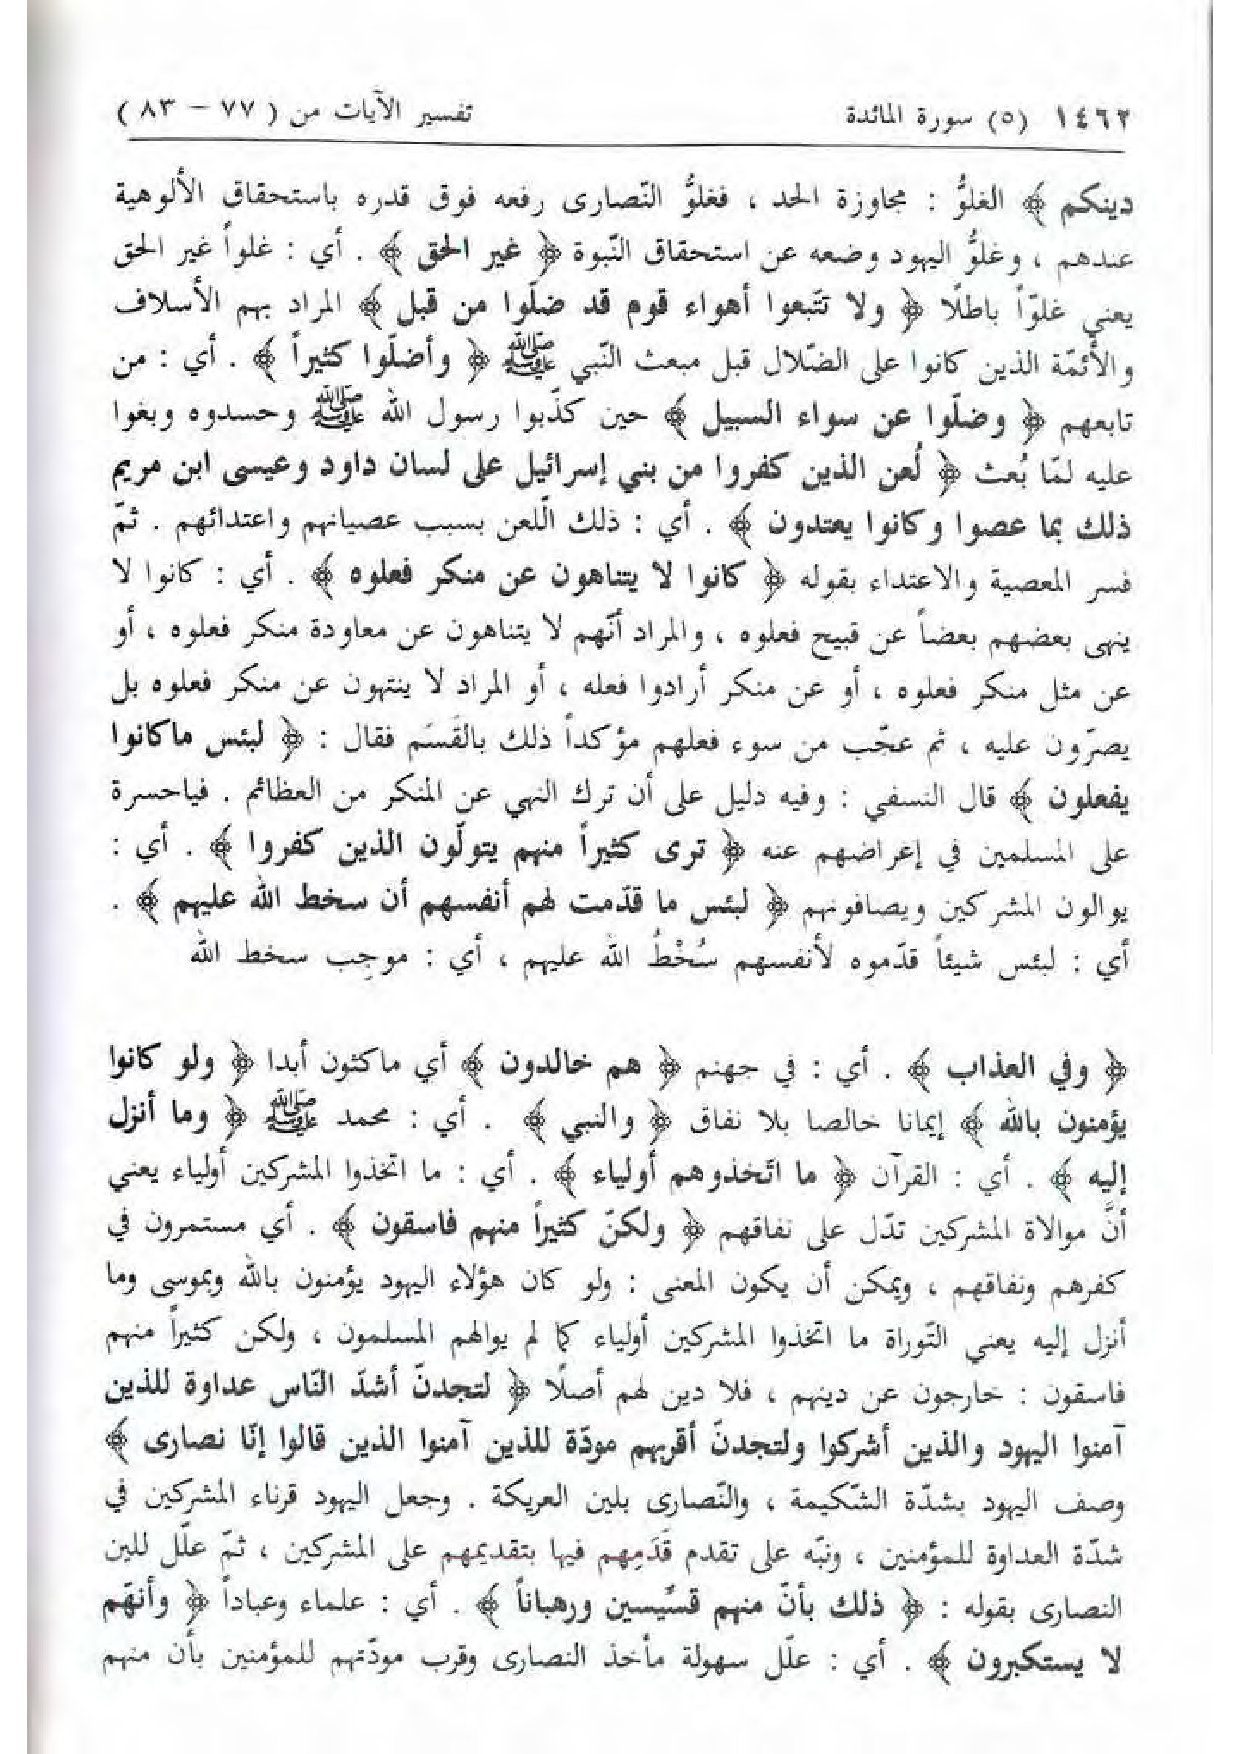 ١٤٦٢ (٥) سورة المائدة تفسير الآيات من ( ٧٧ – ٨٣ )
دينكم ﴾ الغلوُّ : مجاوزة الحد ، فغلوُّ النّصارى رفعه فوق قدره باستحقاق الألوهية
عندهم ، وغلوُّ اليهود وضعه عن استحقاق النّبوة ﴿ غير الحق ﴾ . أي : غلواً غير الحق
يعني غلوّاً باطلًا ﴿ ولا تتّبعوا أهواء قوم قد ضلّوا من قبل ﴾ المراد بهم الأسلاف
والأئمّة الذين كانوا على الضّلال قبل مبعث النّبي ﷺ ﴿ وأضلّوا كثيراً ﴾ . أي : من
تابعهم ﴿ وضلّوا عن سواء السبيل ﴾ حين كذّبوا رسول الله ﷺ وحسدوه وبغوا
عليه لمّا بُعث ﴿ لُعن الذين كفروا من بني إسرائيل على لسان داود وعيسى ابن مريم
ذلك بما عصوا وكانوا يعتدون ﴾ . أي : ذلك الّلعن بسبب عصيانهم واعتدائهم . ثمّ
فسر المعصية والاعتداء بقوله ﴿ كانوا لا يتناهون عن منكر فعلوه ﴾ . أي : كانوا لا
ينهى بعضهم بعضاً عن قبيح فعلوه ، والمراد أنّهم لا يتناهون عن معاودة منكر فعلوه ، أو
عن مثل منكر فعلوه ، أو عن منكر أرادوا فعله ، أو المراد لا ينتهون عن منكر فعلوه بل
يصرّون عليه ، ثم عجّب من سوء فعلهم مؤكداً ذلك بالقَسَم فقال : ﴿ لبئس ماكانوا
يفعلون ﴾ قال النسفي : وفيه دليل على أن ترك النهي عن المنكر من العظائم . فياحسرة
على المسلمين في إعراضهم عنه ﴿ ترى كثيراً منهم يتولّون الذين كفروا ﴾ . أي :
يوالون المشركين ويصافونهم ﴿ لبئس ما قدّمت لهم أنفسهم أن سخط الله عليهم ﴾ .
أي : لبئس شيئاً قدّموه لأنفسهم سُخْطُ الله عليهم ، أي : موجب سخط الله
﴿ وفي العذاب ﴾ . أي : في جهنم ﴿ هم خالدون ﴾ أي ماكثون أبدا ﴿ ولو كانوا
يؤمنون بالله ﴾ إيمانا خالصا بلا نفاق ﴿ والنبي ﴾ . أي : محمد ﷺ ﴿ وما أنزل
إليه ﴾ . أي : القرآن ﴿ ما اتّخذوهم أولياء ﴾ . أي : ما اتخذوا المشركين أولياء يعني
أنَّ موالاة المشركين تدّل على نفاقهم ﴿ ولكنّ كثيراً منهم فاسقون ﴾ . أي مستمرون في
كفرهم ونفاقهم ، ويمكن أن يكون المعنى : ولو كان هؤلاء اليهود يؤمنون بالله وبموسى وما
أنزل إليه يعني التّوراة ما اتخذوا المشركين أولياء كما لم يوالهم المسلمون ، ولكن كثيراً منهم
فاسقون : خارجون عن دينهم ، فلا دين لهم أصلًا ﴿ لتجدنّ أشدّ النّاس عداوة للذين
آمنوا اليهود والذين أشركوا ولتجدنّ أقربهم مودّة للذين آمنوا الذين قالوا إنّا نصارى ﴾
وصف اليهود بشدّة الشّكيمة ، والنّصارى بلين العريكة . وجعل اليهود قرناء المشركين في
شدّة العداوة للمؤمنين ، ونبّه على تقدم قَدَمِهم فيها بتقديمهم على المشركين ، ثمّ علّل للين
النصارى بقوله : ﴿ ذلك بأنّ منهم قسّيسين ورهباناً ﴾ . أي : علماء وعباداً ﴿ وأنهّم
لا يستكبرون ﴾ . أي : علّل سهولة مأخذ النصارى وقرب مودّتهم للمؤمنين بأن منهم